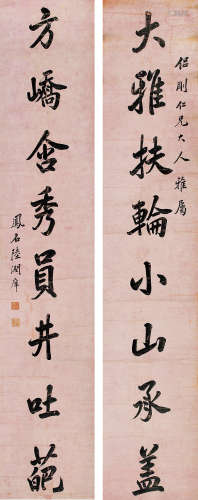 侶剛仁兄大人雅屬
大雅扶輪小山承蓋
方嶠含秀員井吐葩
鳳石陸潤庠